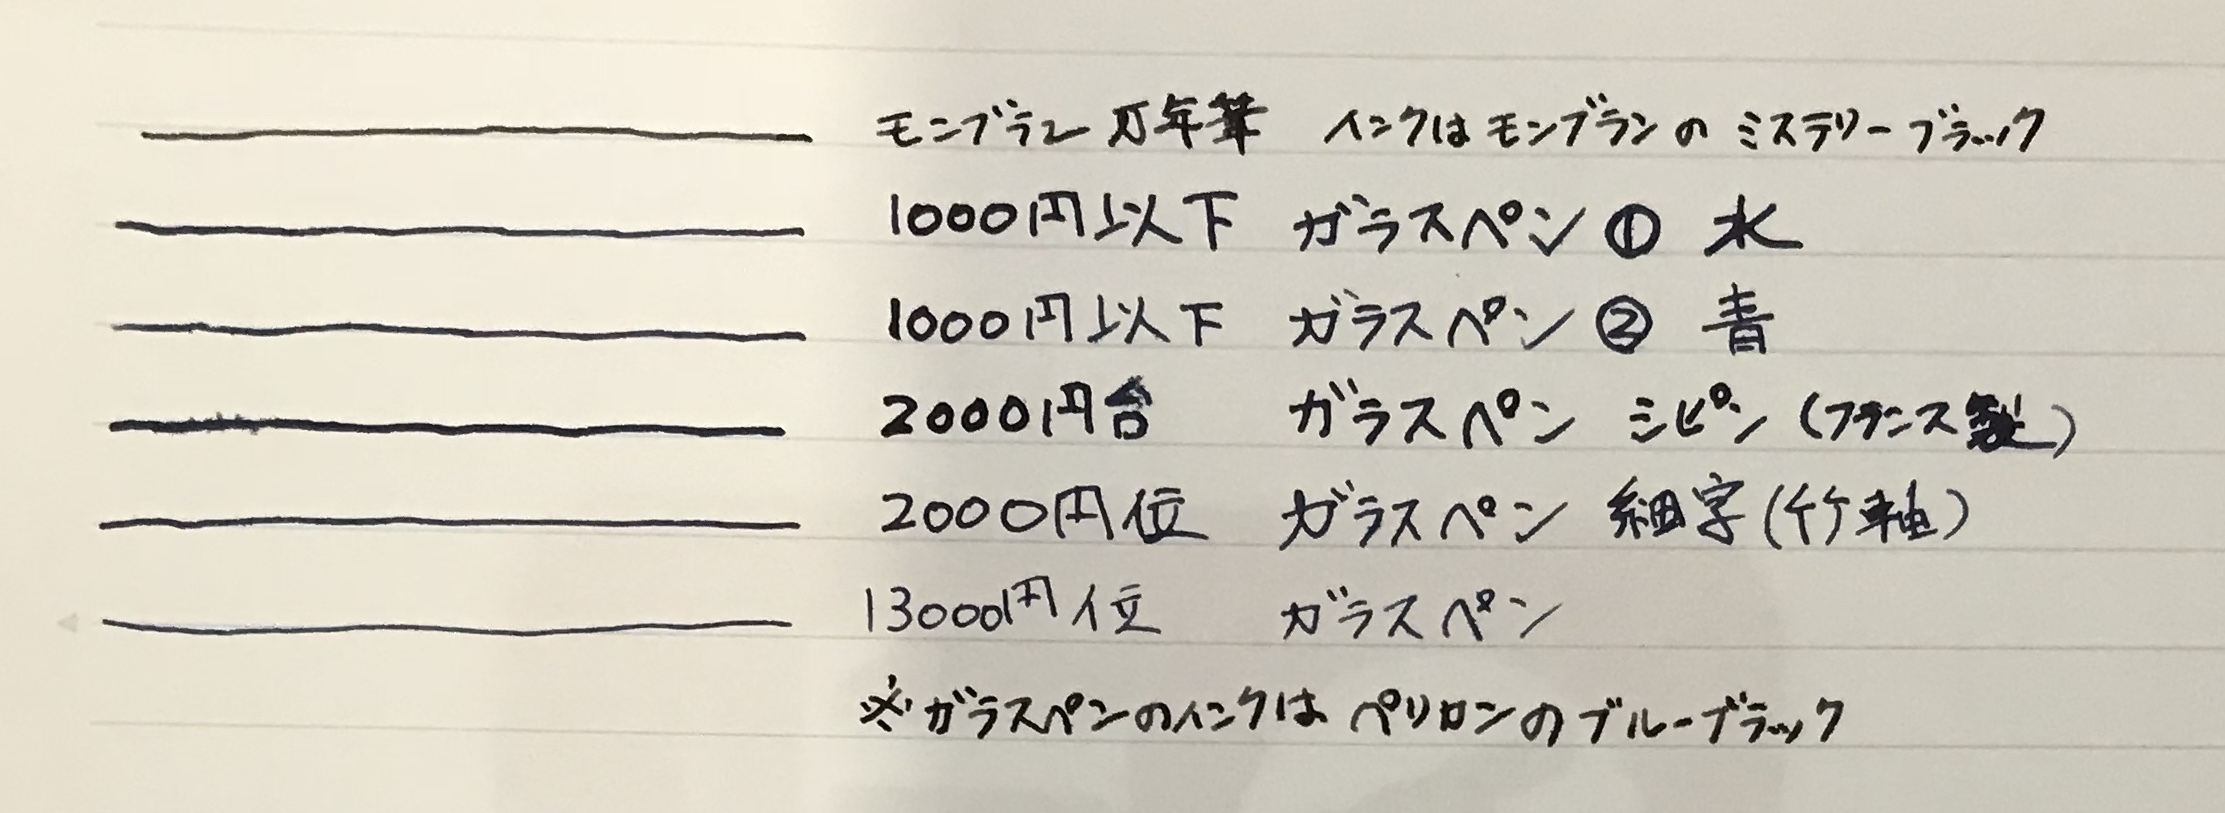 モンブラン 万年筆 インクはモンブランの ミステリーブラック
1000円以下 ガラスペン ① 水
1000円以下 ガラスペン ② 青
2000円台 ガラスペン シピン (フランス製)
2000円位 ガラスペン 細字 (竹軸)
13000円位 ガラスペン
※ガラスペンのインクは ペリロンのブルーブラック